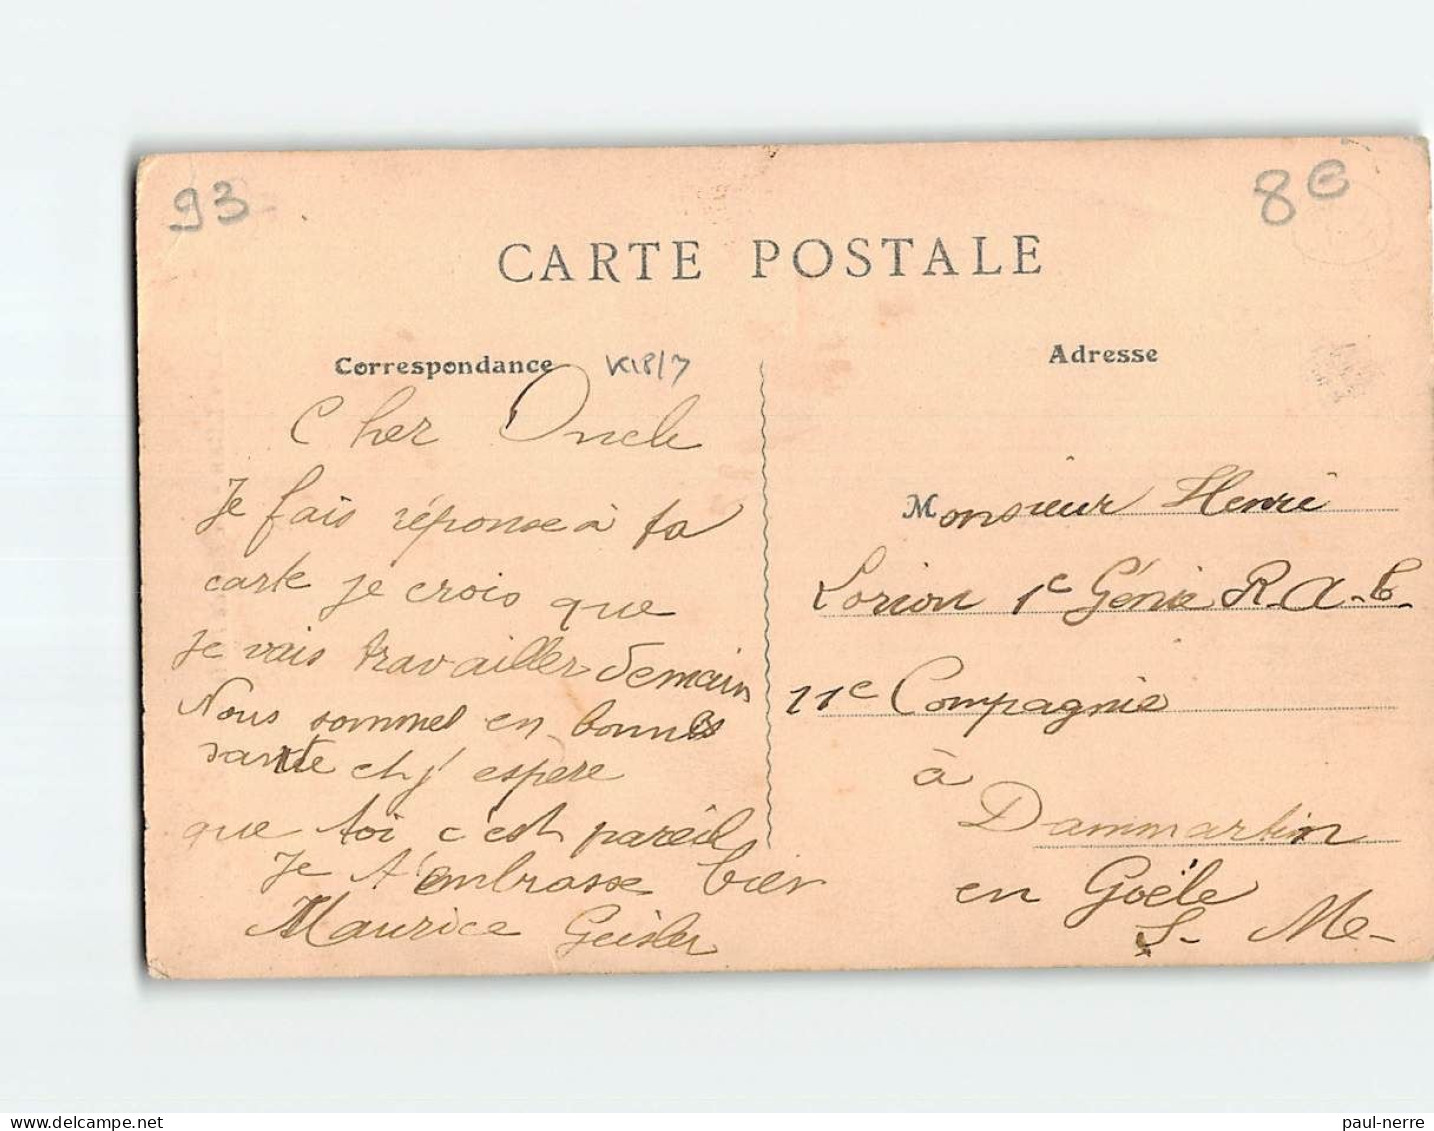 93
8€
CARTE POSTALE
Correspondance
K18/7
Cher Oncle
Je fais réponse à ta
carte je crois que
je vais travailler demain
Nous sommes en bonnes
santée et j'espère
que toi c'est pareil
Je t'embrasse bien
Maurice Geisler
Adresse
Monsieur Henri
Lorion 1e Génie R.A.L.
11e Compagnie
à
Dammartin
en Goële
S. Me
paul-nerre